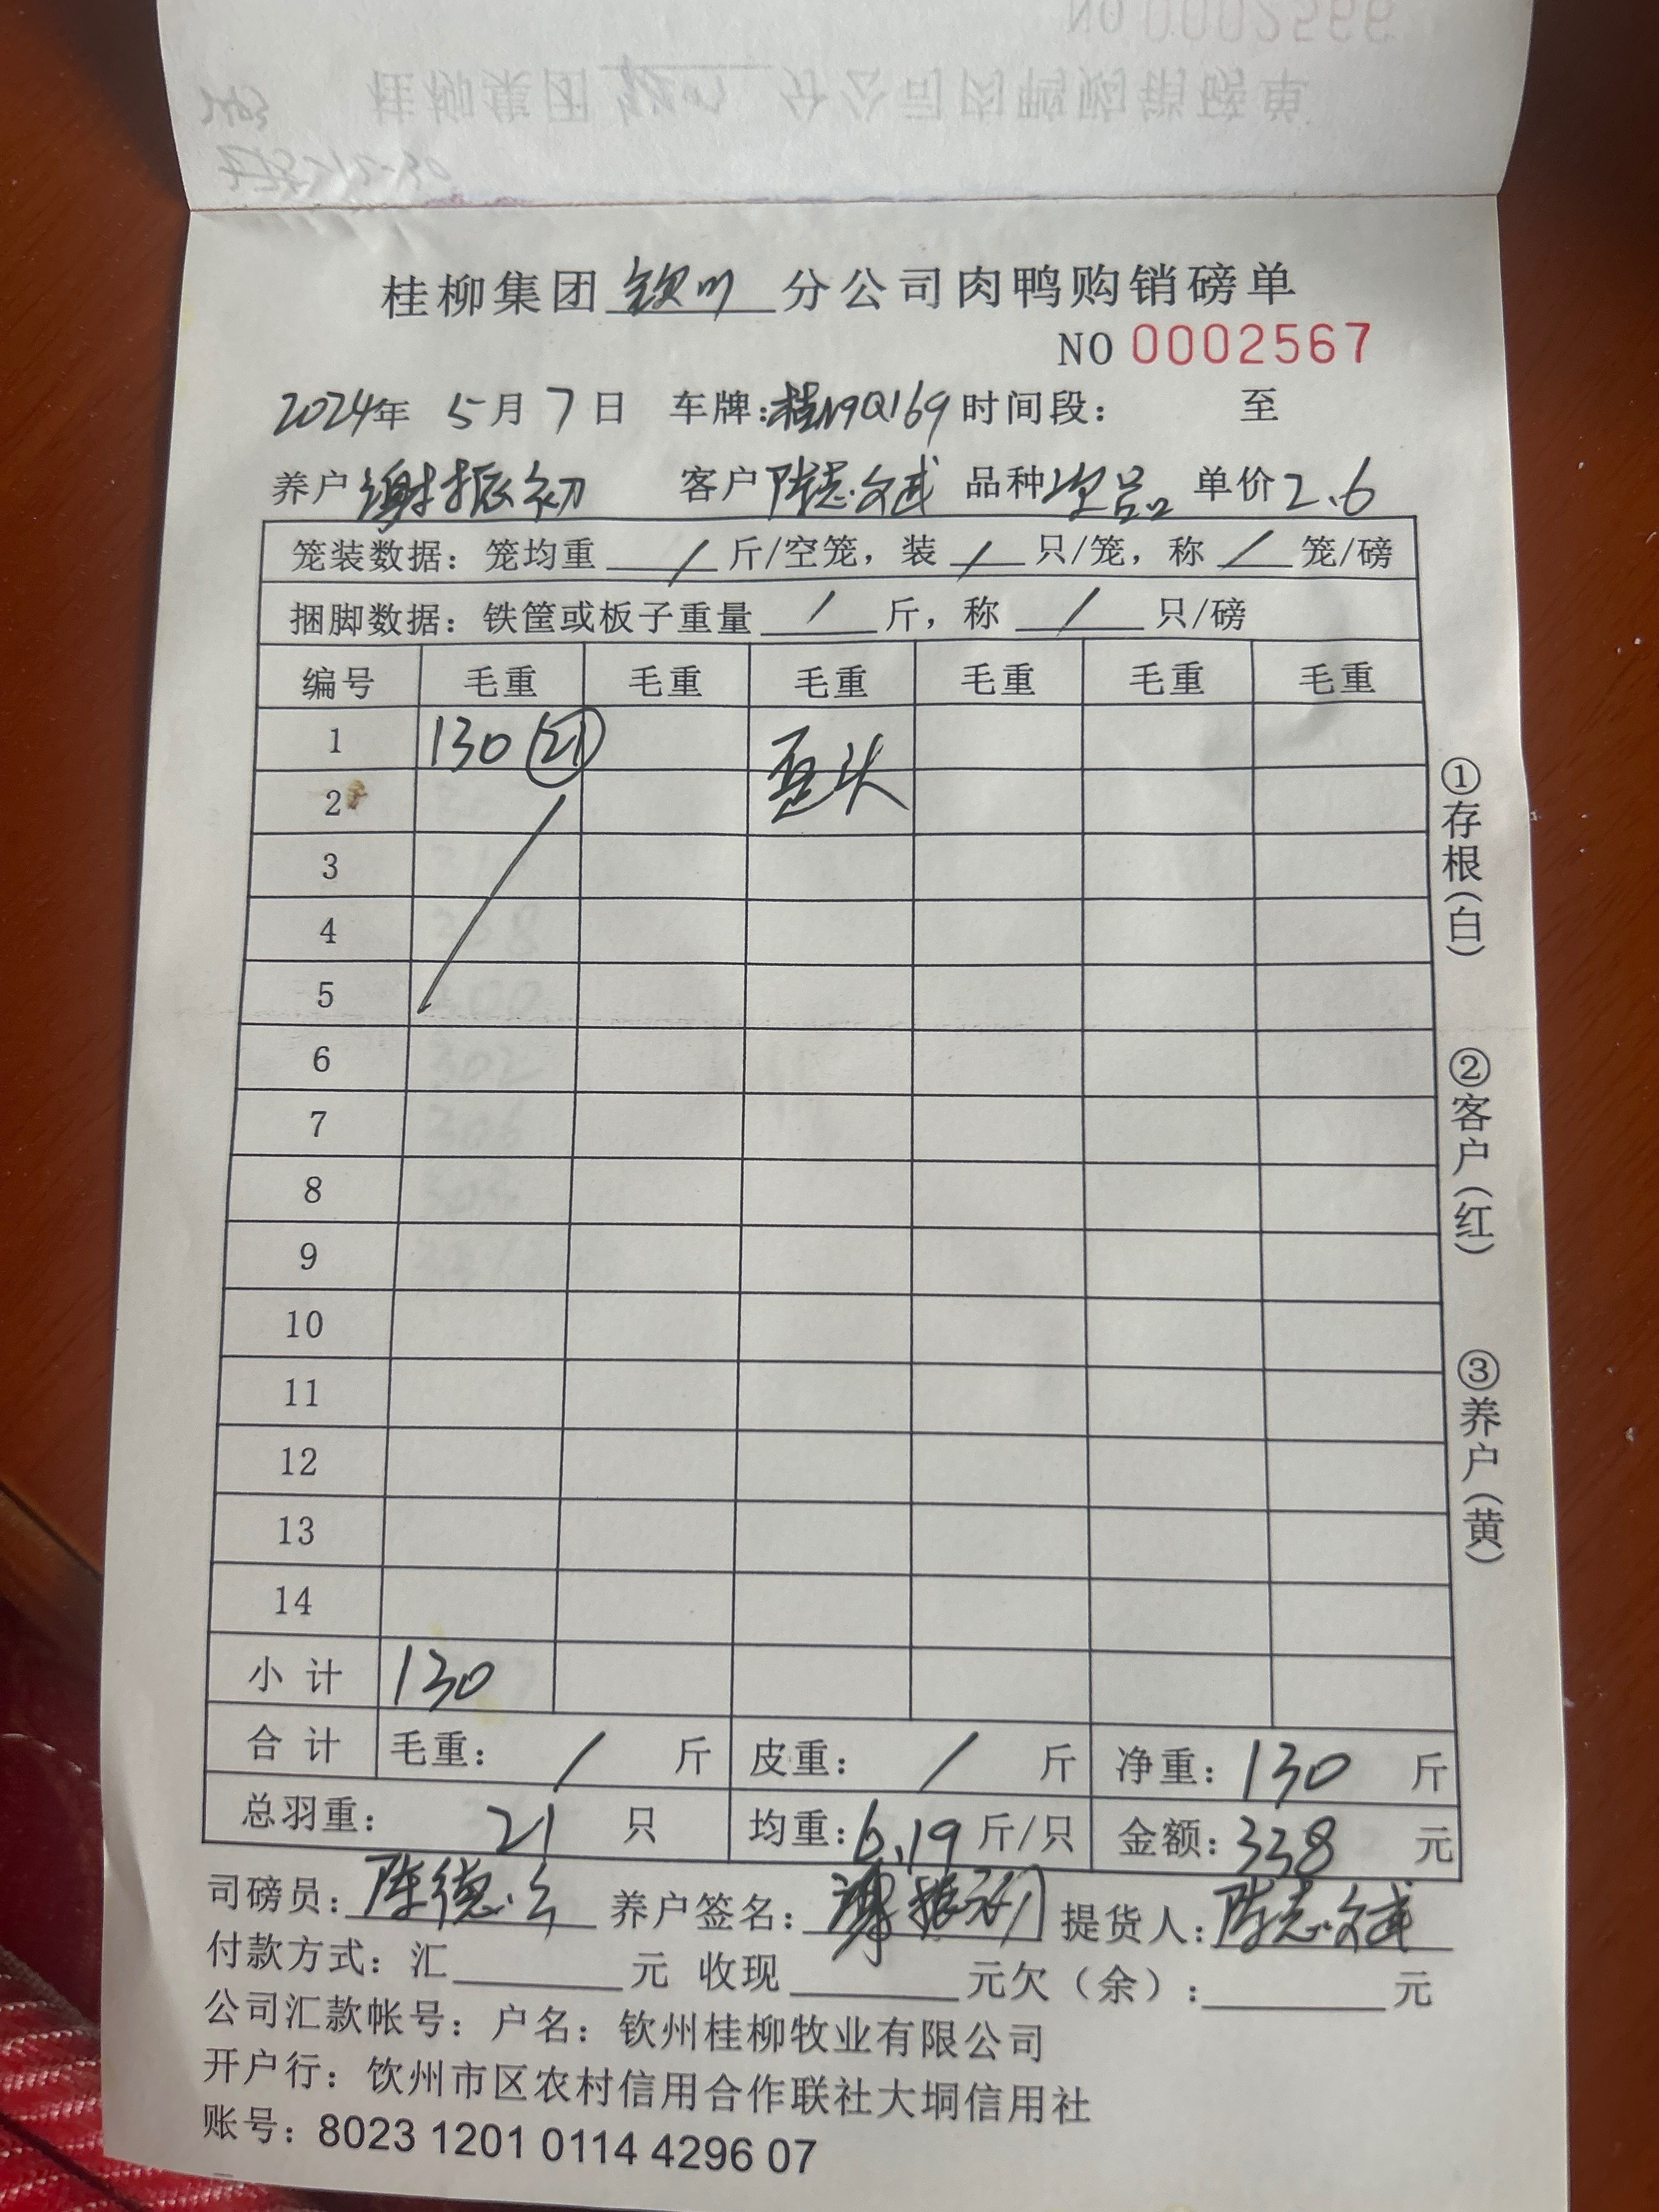 NO 0002566
桂柳集团 钦州 分公司肉鸭购销磅单
桂柳集团 钦州 分公司肉鸭购销磅单
NO 0002567
2024年 5月7日 车牌:桂N9Q169 时间段: 至
养户 谢振初 客户 陈志斌 品种 次品 单价 2.6
笼装数据: 笼均重 / 斤/空笼, 装 / 只/笼, 称 / 笼/磅
捆脚数据: 铁筐或板子重量 / 斤, 称 / 只/磅
编号 毛重 毛重 毛重 毛重 毛重 毛重
1 130 (21)
歪头
2
3
4
5
6
7
8
9
10
11
12
13
14
小计 130
合计 毛重: / 斤 皮重: / 斤 净重: 130 斤
总羽重: 21 只 均重: 6.19 斤/只 金额: 338 元
司磅员: 陈德 养户签名: 谢振初 提货人: 陈志斌
付款方式: 汇 元 收现 元欠(余): 元
公司汇款帐号: 户名: 钦州桂柳牧业有限公司
开户行: 钦州市区农村信用合作联社大垌信用社
账号: 8023 1201 0114 4296 07
①存根(白)
②客户(红)
③养户(黄)